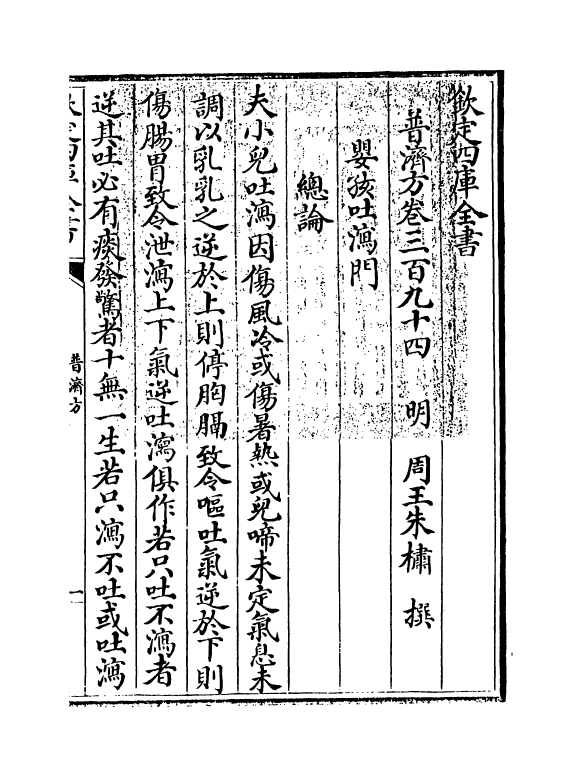 欽定四庫全書
普濟方卷三百九十四 明 周王朱橚 撰
嬰孩吐瀉門
總論
夫小兒吐瀉因傷風冷或傷暑熱或兒啼未定氣息未
調以乳乳之逆於上則停胸膈致令嘔吐氣逆於下則
傷腸胃致令泄瀉上下氣逆吐瀉俱作若只吐不瀉者
逆其吐必有痰發驚者十無一生若只瀉不吐或吐瀉
普濟方
一